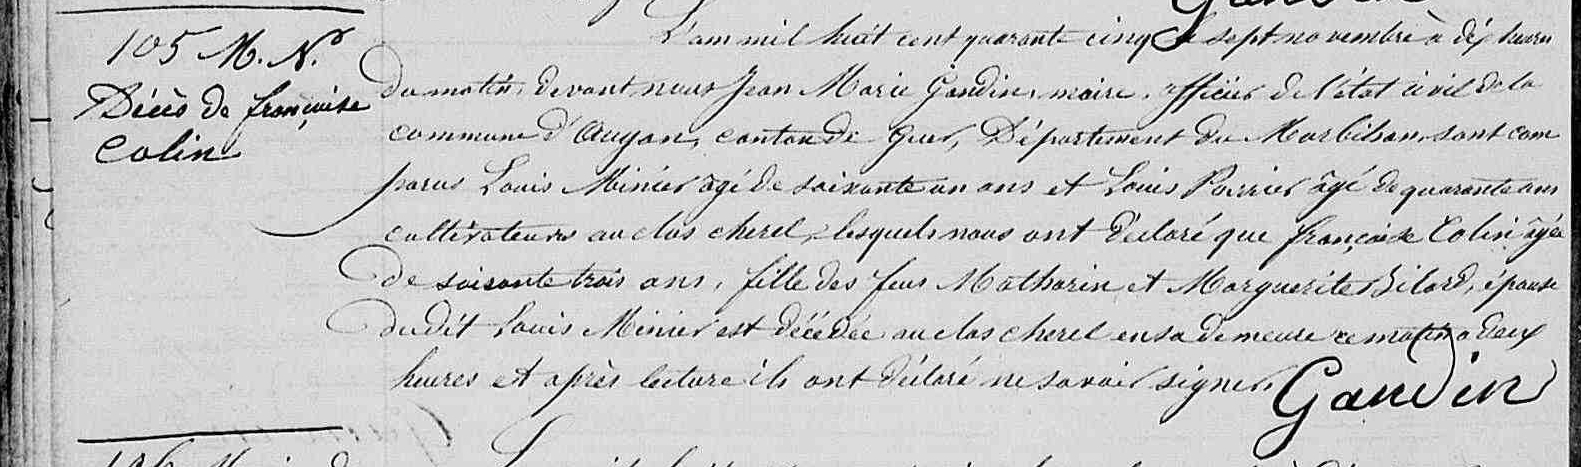 105 M. N.
Décès de françoise
Colin
L'an mil huit cent quarante cinq le sept novembre à dix heures
du matin, devant nous Jean Marie Gandin, maire, officier de l'état civil de la
commune d'Augan, canton de Guer, Département du Morbihan, sont com
parus Louis Minier âgé de soixante un ans et Louis Poirier âgé de quarante ans
cultivateurs au clos cherel, lesquels nous ont déclaré que françoise Colin âgée
de soixante trois ans, fille des feus Mathurin et Marguerite Bilard, épouse
dudit Louis Minier est décédée au clos cherel en sa demeure ce matin a deux
heures et après lecture ils ont déclaré ne savoir signer.
Gandin